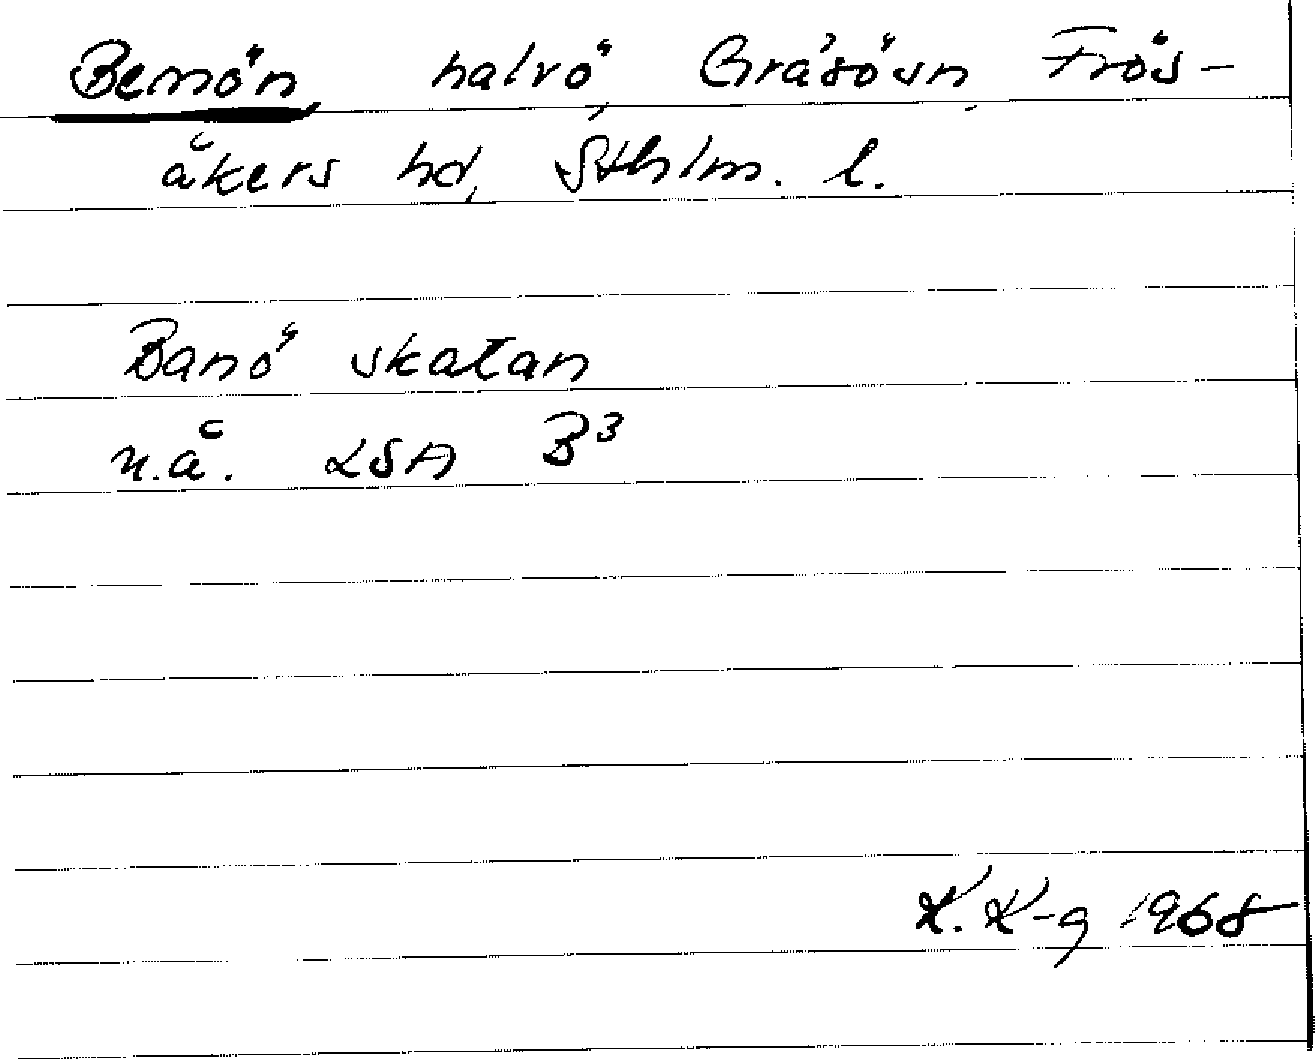 Bemön, halvö, Gräsö sn, Frös-
åkers hd, Sthlm. l.
Banö skatan
n.å. LSA B3
K. K-g 1968